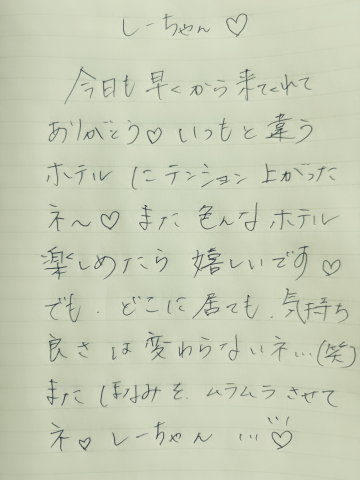 しーちゃん♡
今日も早くから来てくれて
ありがとう♡いつもと違う
ホテルにテンション上がった
ネ〜♡また色んなホテル
楽しめたら嬉しいです♡
でも、どこに居ても、気持ち
良さは変わらないネ…(笑)
またほなみを、ムラムラさせて
ネ♡しーちゃん…♡